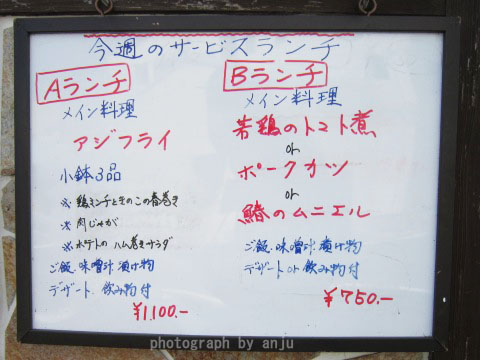 今週のサービスランチ
Aランチ
メイン料理
アジフライ
小鉢3品
※鶏ミンチときのこの春巻き
※肉じゃが
※ポテトのハム巻きサラダ
ご飯 味噌汁 漬け物
デザート 飲み物付
¥1,100.-
Bランチ
メイン料理
若鶏のトマト煮
or
ポークカツ
or
鰆のムニエル
ご飯 味噌汁 漬け物
デザート or 飲み物付
¥750.-
photograph by anju